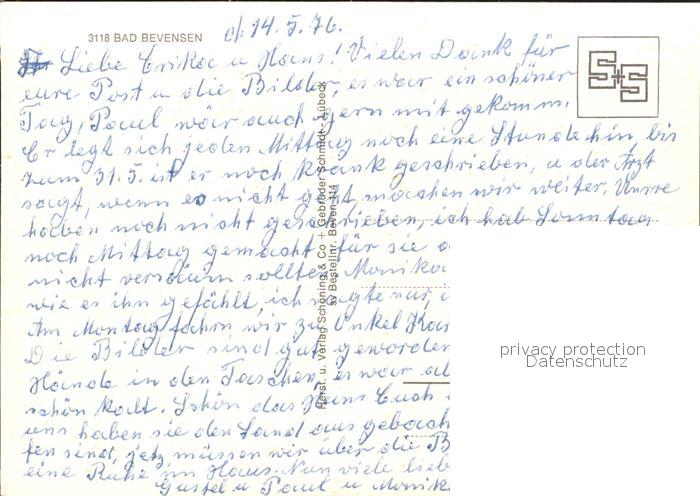 3118 BAD BEVENSEN
d. 14.5.76.
Liebe Erika u Hans! Vielen Dank für
eure Post u die Bilder, es war ein schöner
Tag, Paul wär auch gern mit gekomm.
Er legt sich jeden Mittag noch eine Stunde hin, bis
zum 31.5. ist er noch krank geschrieben, u der Arzt
sagt, wenn es nicht geht machen wir weiter. Unsre
haben noch nicht geschrieben, ich hab Sonntag
noch Mittag gemacht für sie
nicht versäum sollten Monika
wie es ihn gefählt, ich sagte nur,
Am Montag fahrn wir zu Onkel
Die Bilder sind gut geworden
Hände in den Taschen, es war
schön kalt. Schön das Hans Euch
uns haben sie den Sand aus
fen sind, jetz müssen wir über die B
eine Ruhe im Haus. Nun viele lieb
Gustel u Paul u Monik
Herst. u. Verlag Schöning & Co + Gebrüder Schmidt - Lübeck
sy Bestellnr. Beven 144
S+S
privacy protection
Datenschutz